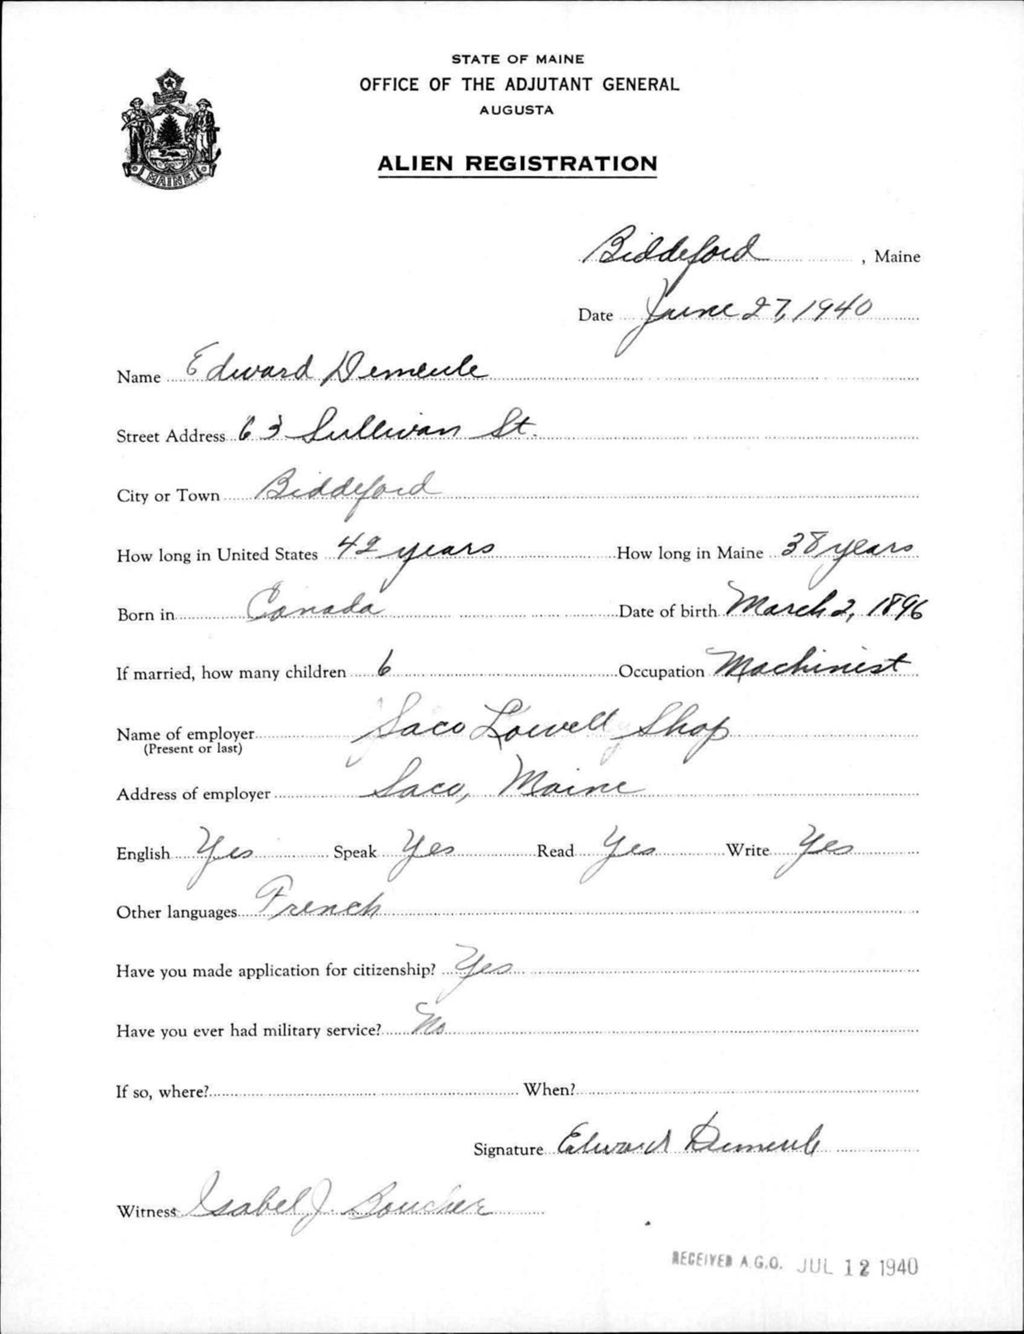 STATE OF MAINE
OFFICE OF THE ADJUTANT GENERAL
AUGUSTA
ALIEN REGISTRATION
MAINE
Biddeford, Maine
Date June 27, 1940
Name Edward Demeule
Street Address 63 Sullivan St.
City or Town Biddeford
How long in United States 42 years How long in Maine 38 years
Born in Canada Date of birth March 2, 1896
If married, how many children 6 Occupation Machinist
Name of employer Saco Lowell Shop
(Present or last)
Address of employer Saco, Maine
English Yes Speak Yes Read Yes Write Yes
Other languages French
Have you made application for citizenship? Yes
Have you ever had military service? No
If so, where? When?
Signature Edward Demeule
Witness Isabel J. Boucher
RECEIVED A.G.O. JUL 12 1940